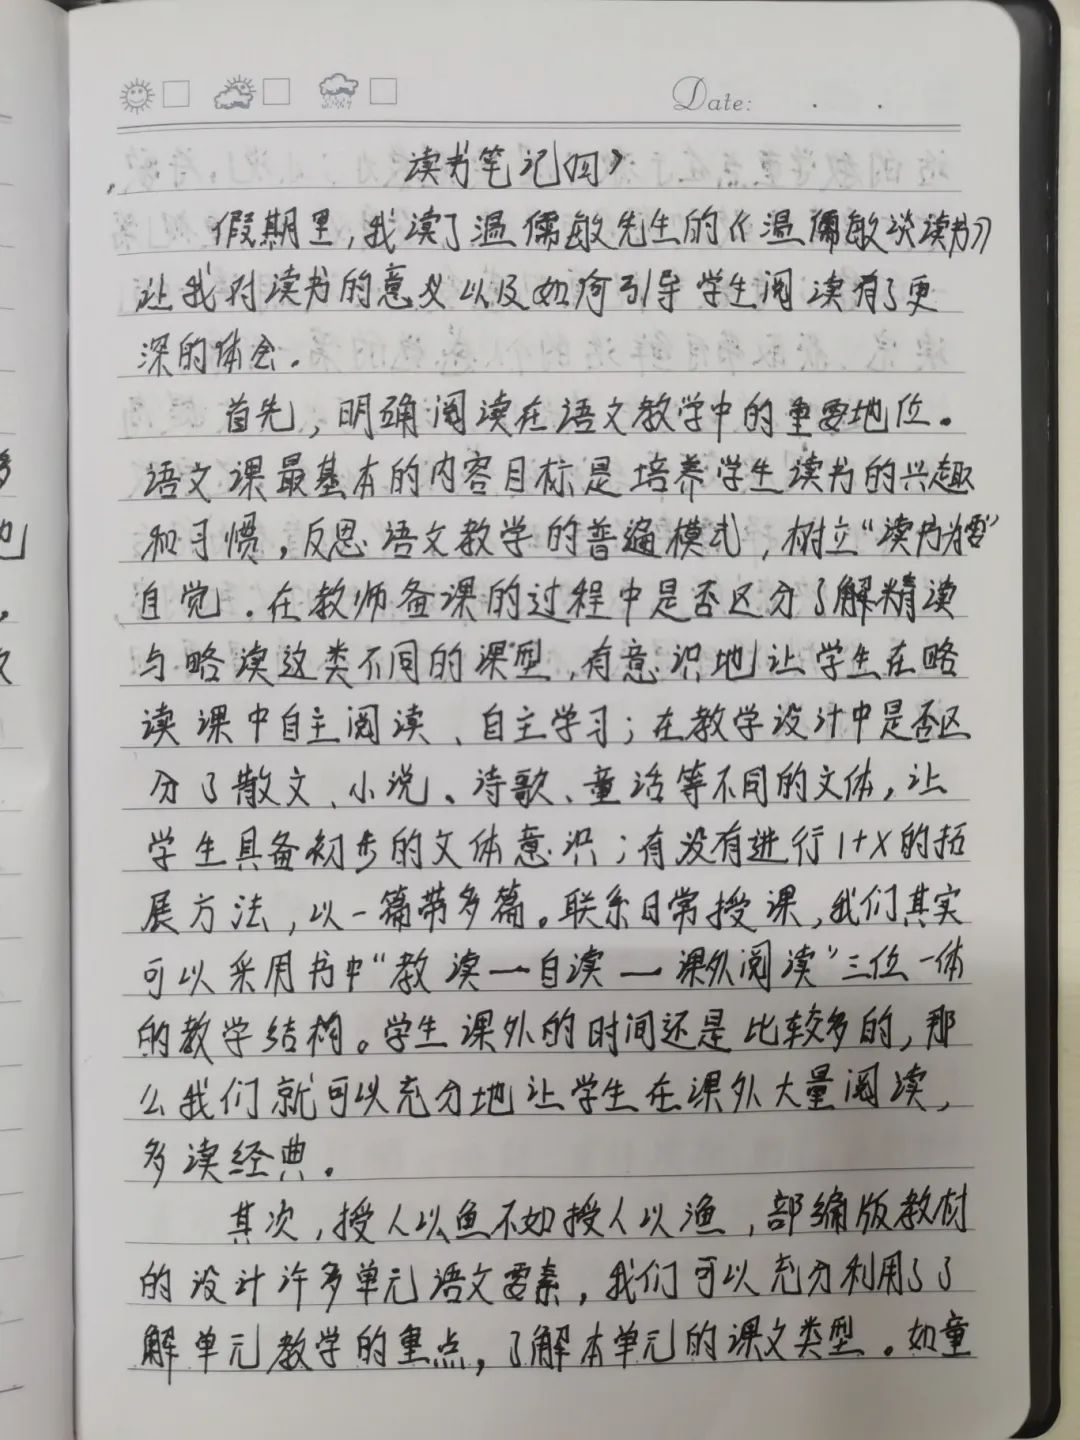 Date:
读书笔记(四)
假期里,我读了温儒敏先生的《温儒敏谈读书》
让我对读书的意义以及如何引导学生阅读有了更
深的体会.
首先,明确阅读在语文教学中的重要地位。
语文课最基本的内容目标是培养学生读书的兴趣
和习惯,反思语文教学的普遍模式,树立“读书为要”
自觉.在教师备课的过程中是否区分了解精读
与略读这类不同的课型,有意识地让学生在略
读课中自主阅读、自主学习;在教学设计中是否区
分了散文、小说、诗歌、童话等不同的文体,让
学生具备初步的文体意识;有没有进行1+X的拓
展方法,以一篇带多篇。联系日常授课,我们其实
可以采用书中“教读—自读—课外阅读”三位一体
的教学结构。学生课外的时间还是比较多的,那
么我们就可以充分地让学生在课外大量阅读,
多读经典.
其次,授人以鱼不如授人以渔,部编版教材
的设计许多单元语文要素,我们可以充分利用了了
解单元教学的重点,了解本单元的课文类型.如童